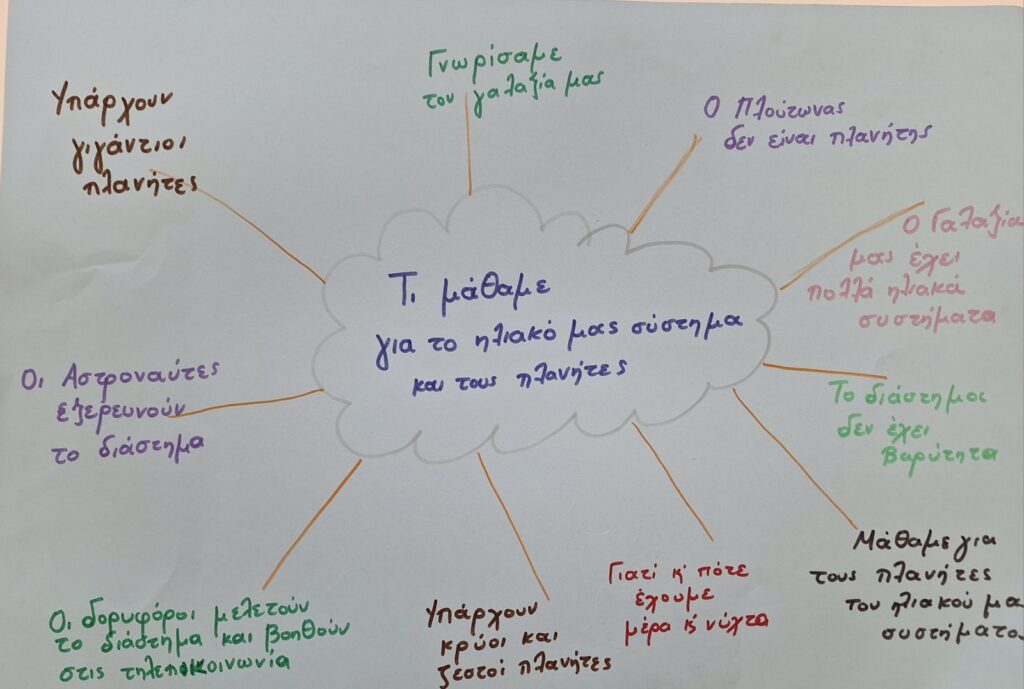 Γνωρίσαμε
τον γαλαξία μας
Υπάρχουν
γιγάντιοι
πλανήτες
Ο Πλούτωνας
δεν είναι πλανήτης
Ο Γαλαξία
μας έχει
πολλά ηλιακά
συστήματα
Τι μάθαμε
για το ηλιακό μας σύστημα
και τους πλανήτες
Οι Αστροναύτες
εξερευνούν
το διάστημα
Το διάστημα
δεν έχει
βαρύτητα
Μάθαμε για
τους πλανήτες
του ηλιακού μα
συστήματο
Γιατί κ' πότε
έχουμε
μέρα κ' νύχτα
Υπάρχουν
κρύοι και
ζεστοί πλανήτες
Οι δορυφόροι μελετούν
το διάστημα και βοηθούν
στις τηλεποικοινωνία